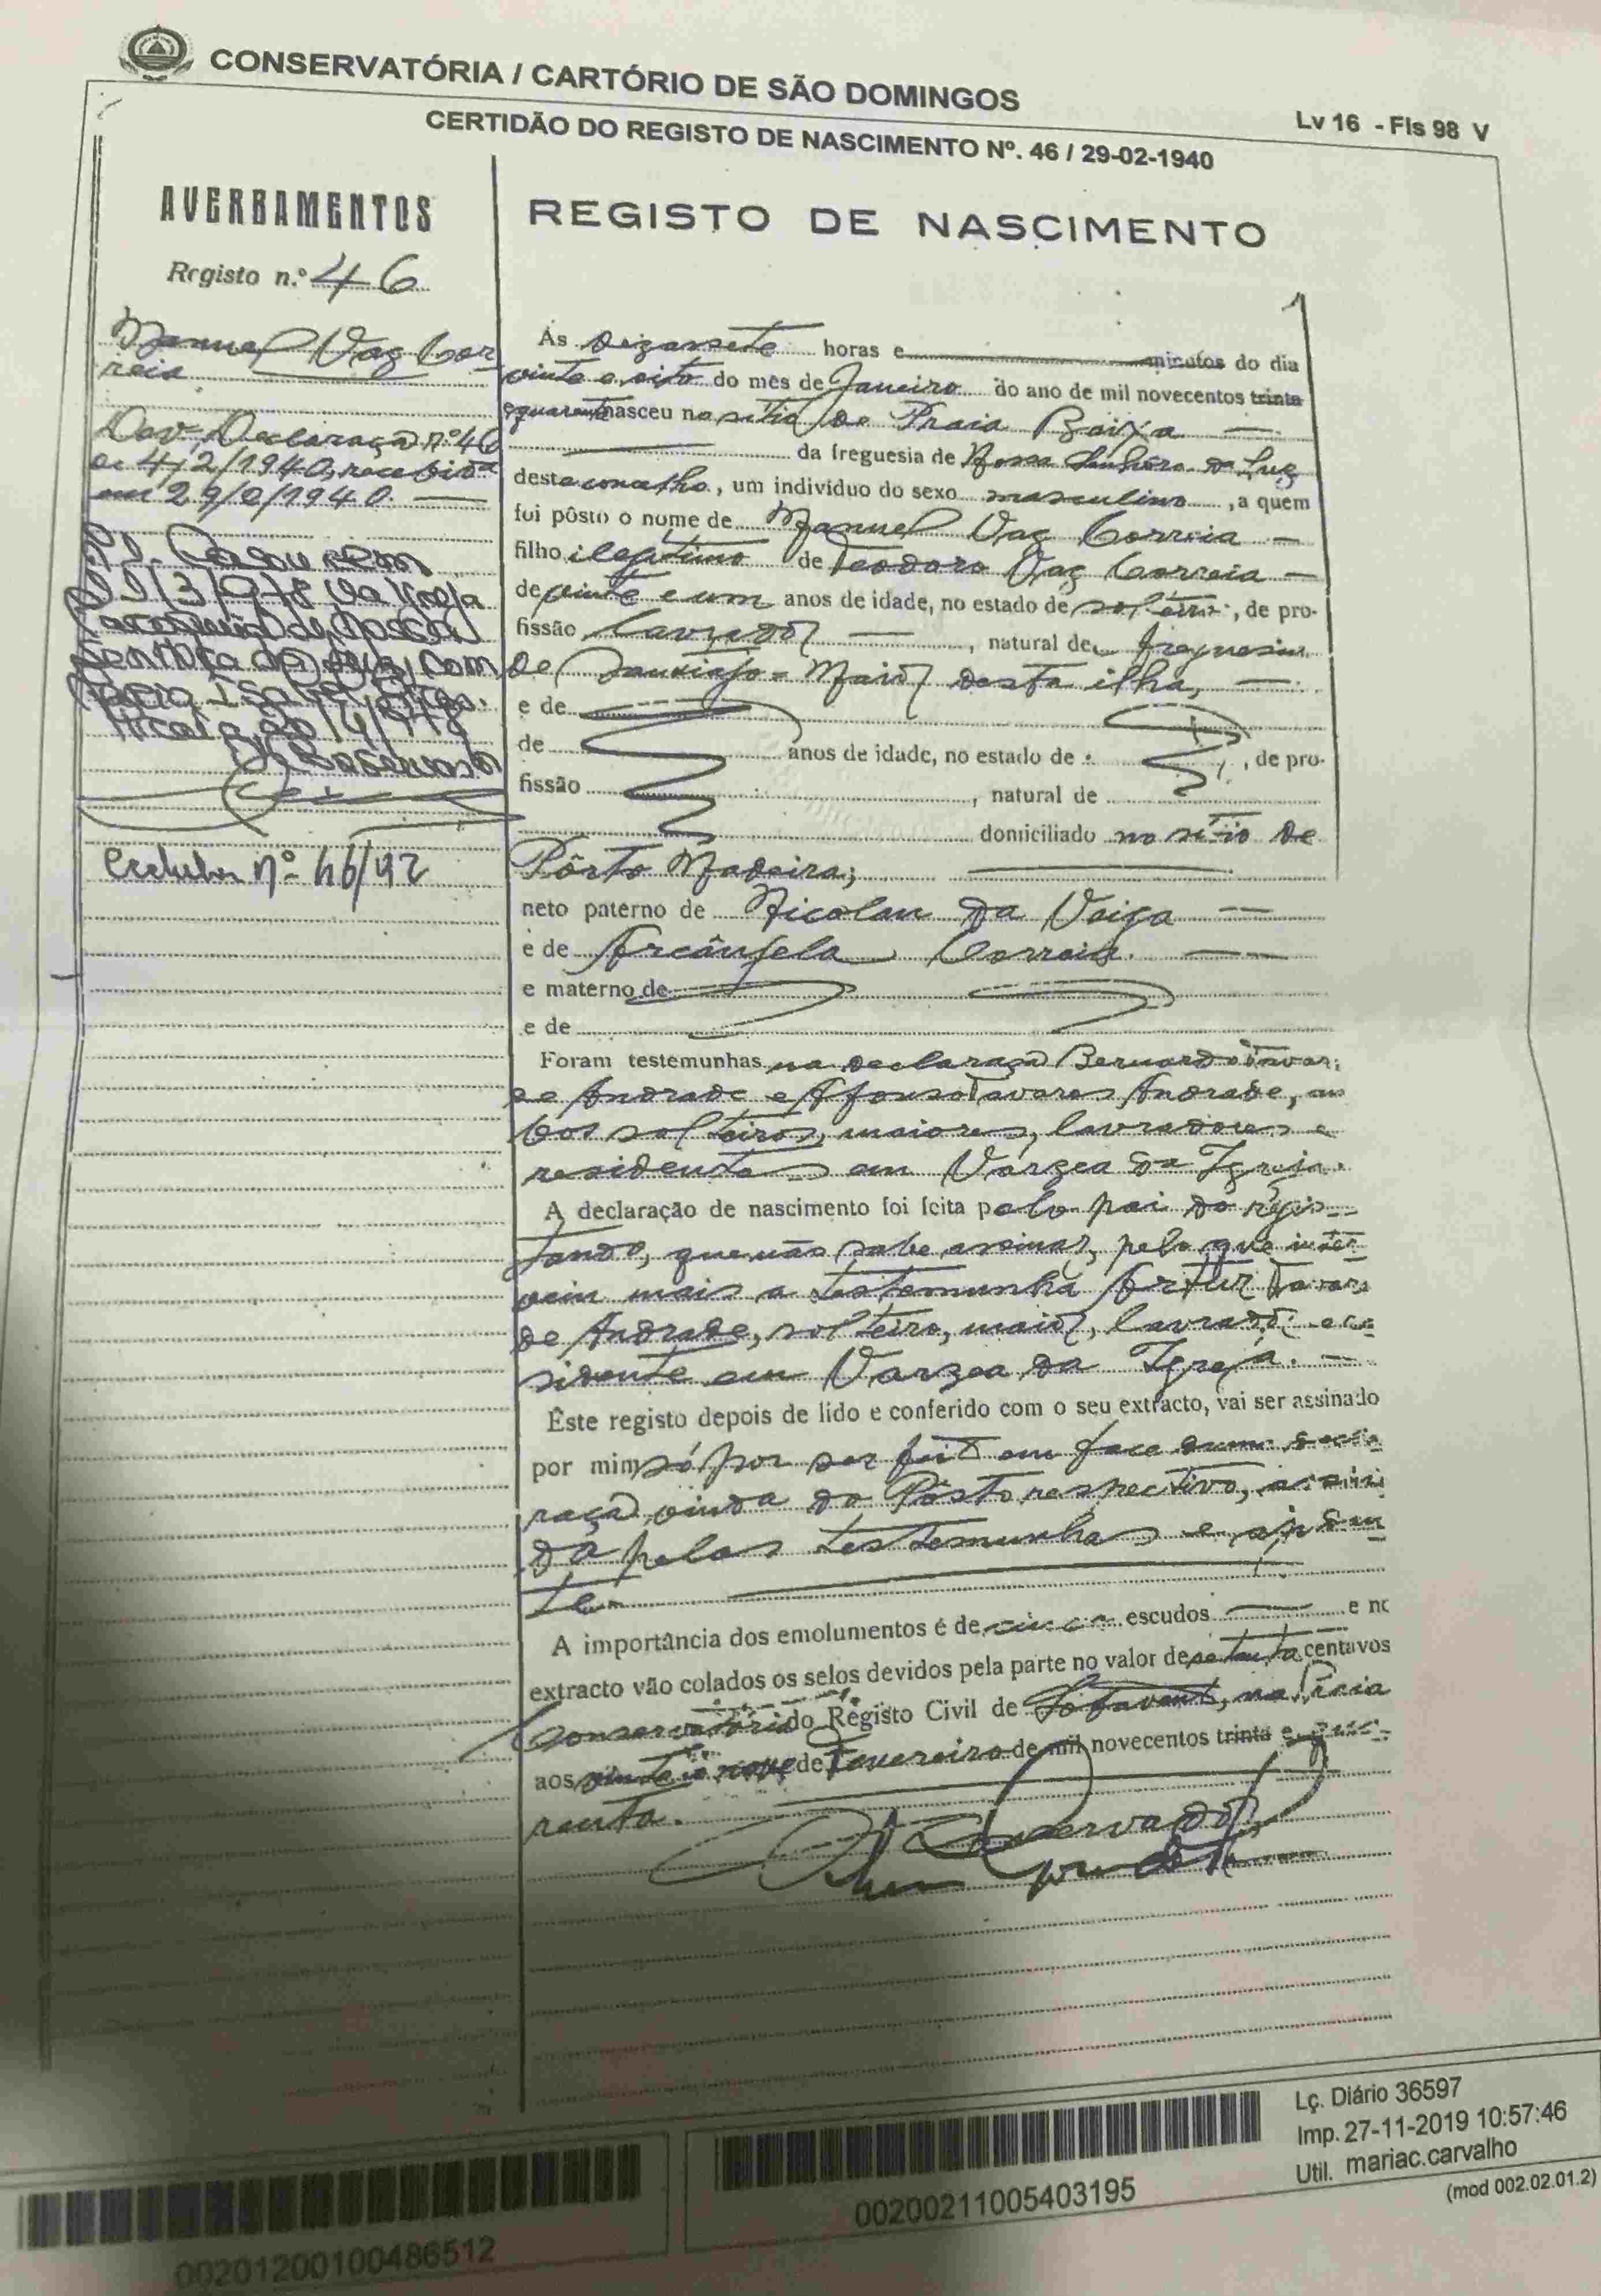 CONSERVATÓRIA / CARTÓRIO DE SÃO DOMINGOS
Lv 16 - Fls 98 V
CERTIDÃO DO REGISTO DE NASCIMENTO Nº. 46 / 29-02-1940
AVERBAMENTOS
Registo n.º 46
Manuel Vaz Cor-
reia
Dev. Declaração nº 46
de 4/2/1940, recebida
em 29/2/1940.
Casou em
da Nossa
Senhora da Luz, com
Isabel
nº 46/42
REGISTO DE NASCIMENTO
Ás dezassete horas e minutos do dia
vinte e oito do mês de Janeiro do ano de mil novecentos trinta
e quarenta nasceu no sitio de Praia Baixa
da freguesia de Nossa Senhora da Luz
deste concelho, um indivíduo do sexo masculino, a quem
foi pôsto o nome de Manuel Vaz Correia
filho ilegítimo de Teodoro Vaz Correia
de vinte e um anos de idade, no estado de solteiro, de pro-
fissão lavrador, natural de freguesia
de Santiago-Maior desta ilha,
e de
de anos de idade, no estado de , de pro-
fissão , natural de
domiciliado no sítio de
Pôrto Madeira;
neto paterno de Nicolau da Veiga
e de Arcângela Correia.
e materno de
e de
Foram testemunhas na declaração Bernardo Tavares
de Andrade e Afonso Tavares Andrade, am
bos solteiros, maiores, lavradores e
residentes em Várzea da Igreja.
A declaração de nascimento foi feita pelo pai do regis-
tando, que não sabe assinar, pelo que inter
vem mais a testemunha Artur Tavares
de Andrade, solteiro, maior, lavrador e re
sidente em Várzea da Igreja.
Êste registo depois de lido e conferido com o seu extracto, vai ser assinado
por mim só por ser feito em face duma decla
ração vinda do Pôsto respectivo, assina
da pelas testemunhas e ajudan
te.
A importância dos emolumentos é de cinco escudos e no
extracto vão colados os selos devidos pela parte no valor de setenta centavos
Conservatória do Registo Civil de Sotavento, na Praia
aos vinte e nove de Fevereiro de mil novecentos trinta e qua-
renta.
O Conservador,
Lç. Diário 36597
Imp. 27-11-2019 10:57:46
Util. mariac.carvalho
(mod 002.02.01.2)
00200211005403195
00201200100486512